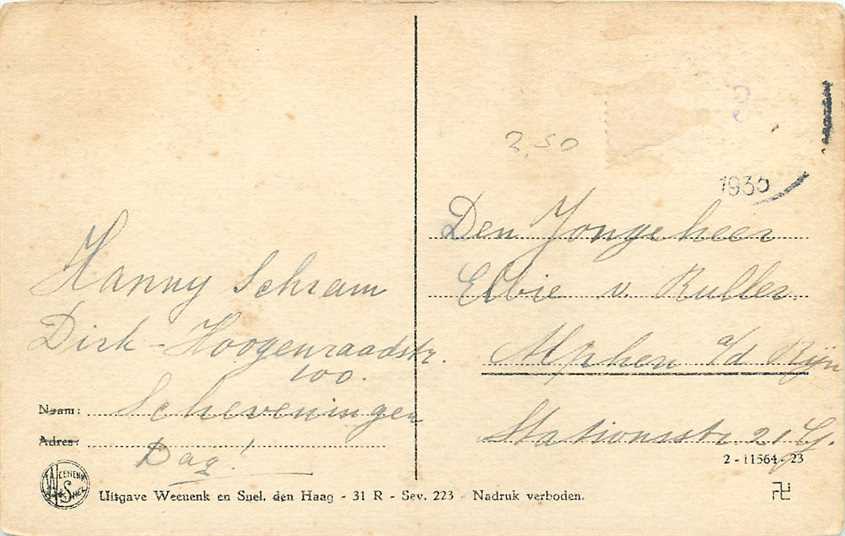 2,50
1933
Hanny Schram
Dirk-Hoogenraadstr.
100.
Naam: Scheveningen
Adres:
Dag!
Den Jongeheer
Elbie v. Ruller
Alphen a/d Rijn
Stationsstr. 21 G.
2-11564-23
Uitgave Weenenk en Snel. den Haag - 31 R - Sev. 223 - Nadruk verboden.